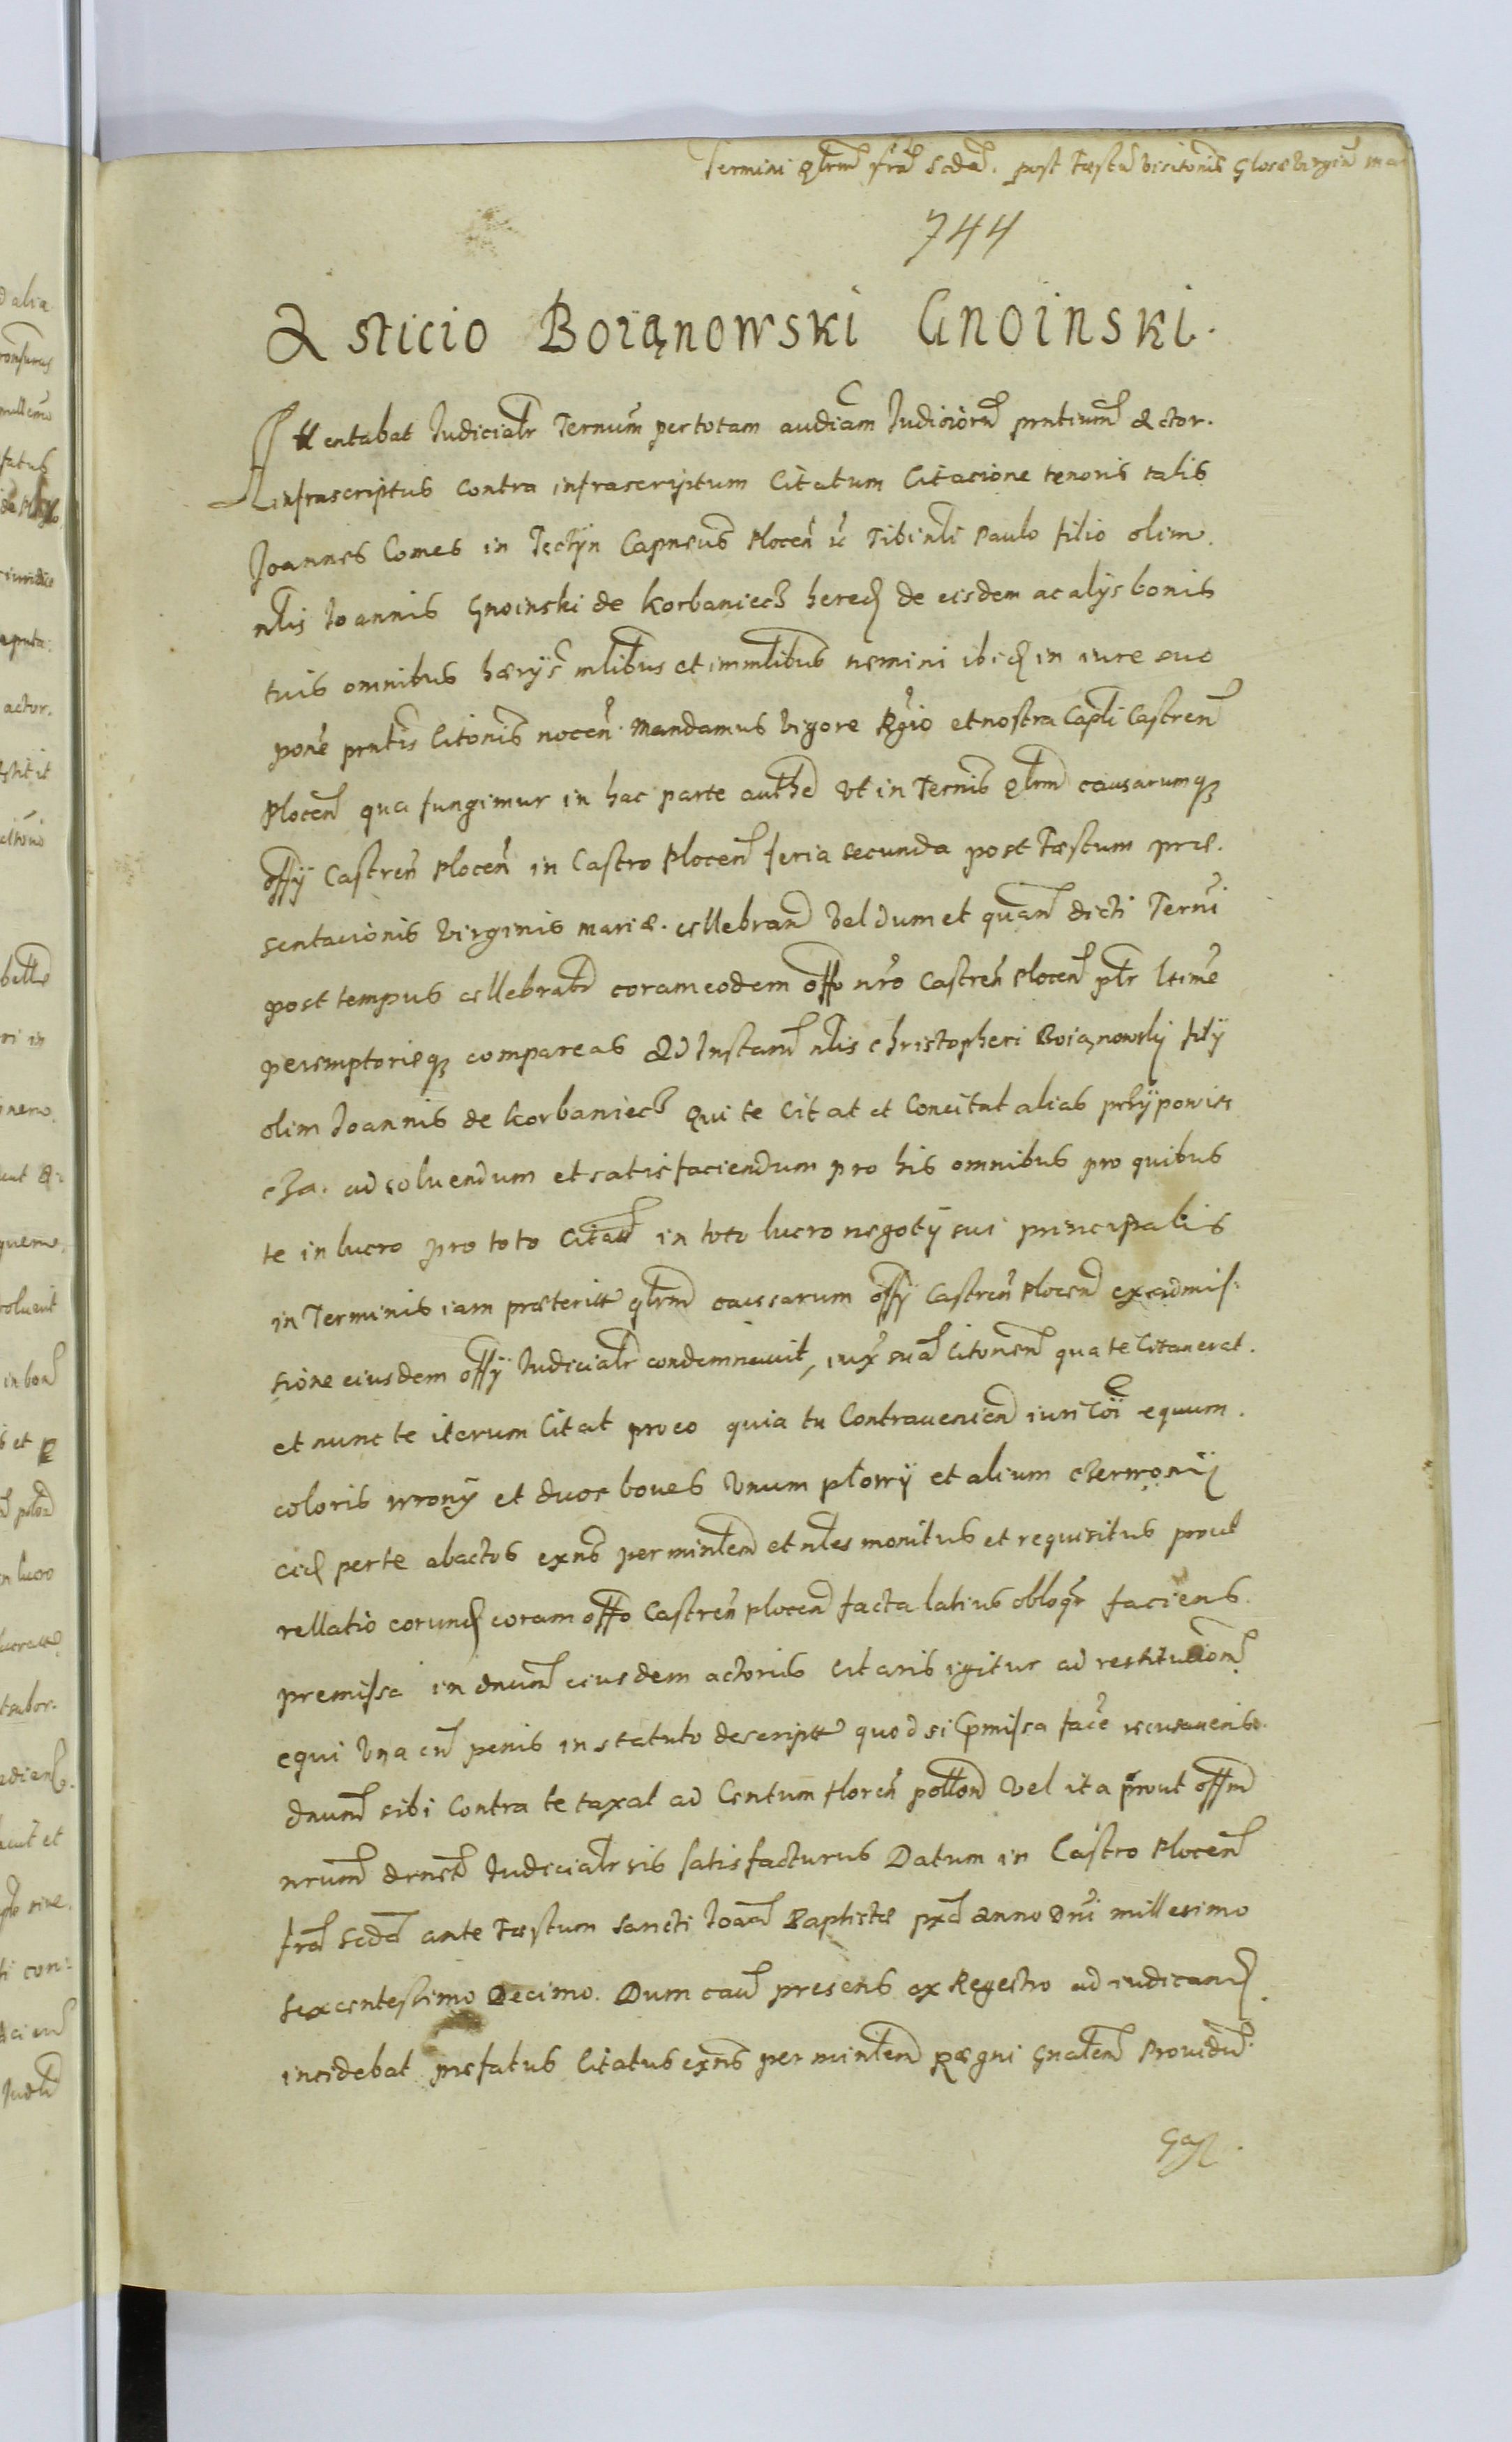 Termini qlrm fria Scda. post Fæstu visitonis Glosæ Virgin Ma
744
A sticio Boiąnowski Gnoinski.
Attentabat Judicialr Ternum per totam audiam Judiciorn prntium Actor.
infrascriptus contra infrascriptum Citatum Citacione tenoris talis
Joannes Comes in Tectyn Capneus Plocen ic Tibi nli Paulo filio olim.
nlis Joannis Gnoinski de Korbaniecz hered de eisdem ac alys bonis
tuis omnibus hærys mlibus et immlibus nemini ibid in iure suo
pone prntis Citonis nocen. Mandamus vigore Rgio et nostra Capli Castren
Plocen qua fungimur in hac parte authe Vt in Ternis qlrm causarumq
offy Castren Plocen in Castro Plocen feria secunda post Fæstum præ.
sentacionis Virginis Mariæ. cellebran Vel dum et quan dicti Terni
post tempus cellebrabr coram eodem offo nro Castren Plocen plr ltime
peremptorieq compareas Ad Instan nlis Christopheri Boiąnowsky fily
olim Joannis de Korbaniecz Qui te Citat et Concitat alias przypowie
cza. ad soluendum et satisfaciendum pro his omnibus pro quibus
te in lucro pro toto Citatt in toto lucro negoty sui principalis
in Terminis iam præteritt qlrm causarum offy Castren Plocen ex admis:
sione eiusdem offy Judicialr condemnauit, iux sua Citonem qua te Citauerat.
et nunc te iterum Citat pro eo quia tu Contraueniend iuri coi equum.
coloris wrony et duos boues Vnum płowy et alium czerwony
eid per te abactos exns per minlem et nles monitus et requisitus prout
rellatio corund coram offo Castren Plocen facta latius obloqr faciens.
premissa in dnum eiusdem actoris citaris igitur ad restitucionem
equi Vna cu penis in statuto descriptt quod si præmissa face recusaueris.
dnum sibi Contra te taxat ad Centum floren pollon Vel ita prout offm
nrum dernet Judicialr sis satisfacturus Datum in Castro Plocen
fria Scda ante Fæstum Sancti Joan Baptistæ pxa Anno Dni millesimo
sexcentessimo Decimo. Dum cau presens ex Regestro ad iudicand.
incidebat prefatus Citatus exns per minlem Regni Gnalem Prouidu